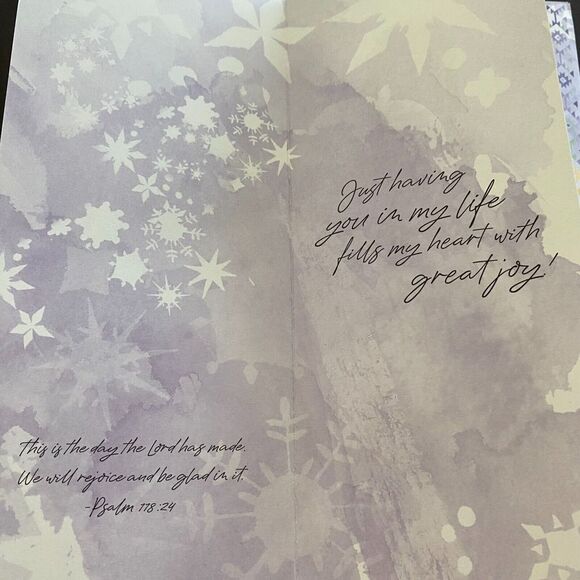 This is the day the Lord has made.
We will rejoice and be glad in it.
-Psalm 118:24
Just having
you in my life
fills my heart with
great joy!